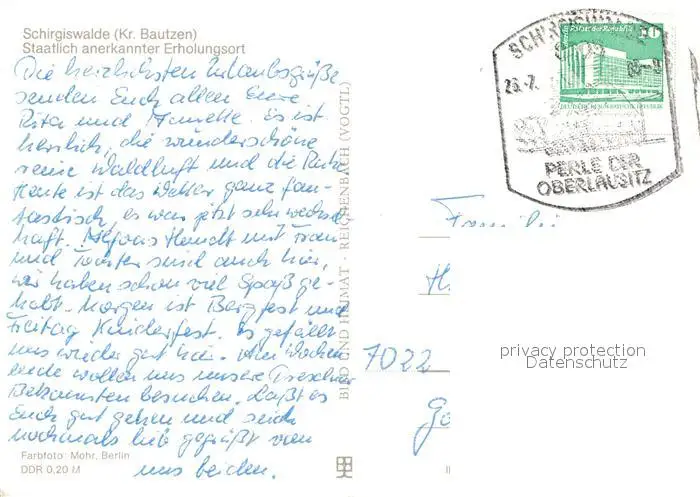 Schirgiswalde (Kr. Bautzen)
Staatlich anerkannter Erholungsort
Die herzlichsten Urlaubsgrüße
senden Euch allen Eure
Rita und Annette. Es ist
herrlich, die wunderschöne
reine Waldluft und die Ruhe.
Heute ist das Wetter ganz fan-
tastisch, es war jetzt sehr wechsel
haft. Handt mit Frau
und Tochter sind auch hier,
wir haben schon viel Spaß ge-
habt. Morgen ist Bergfest und
Freitag Kinderfest. Es gefällt
uns wieder gut hier. Am Wochen
ende wollen uns unsere
Bekannten besuchen. Laßt es
Euch gut gehen und seid
nochmals lieb gegrüßt von
uns beiden.
Farbfoto: Mohr, Berlin
DDR 0,20 M
BILD UND HEIMAT · REICHENBACH (VOGTL)
SCHIRGISWALDE
PERLE DER
OBERLAUSITZ
Palast der Republik
10
Familie
H
7022
privacy protection
Datenschutz